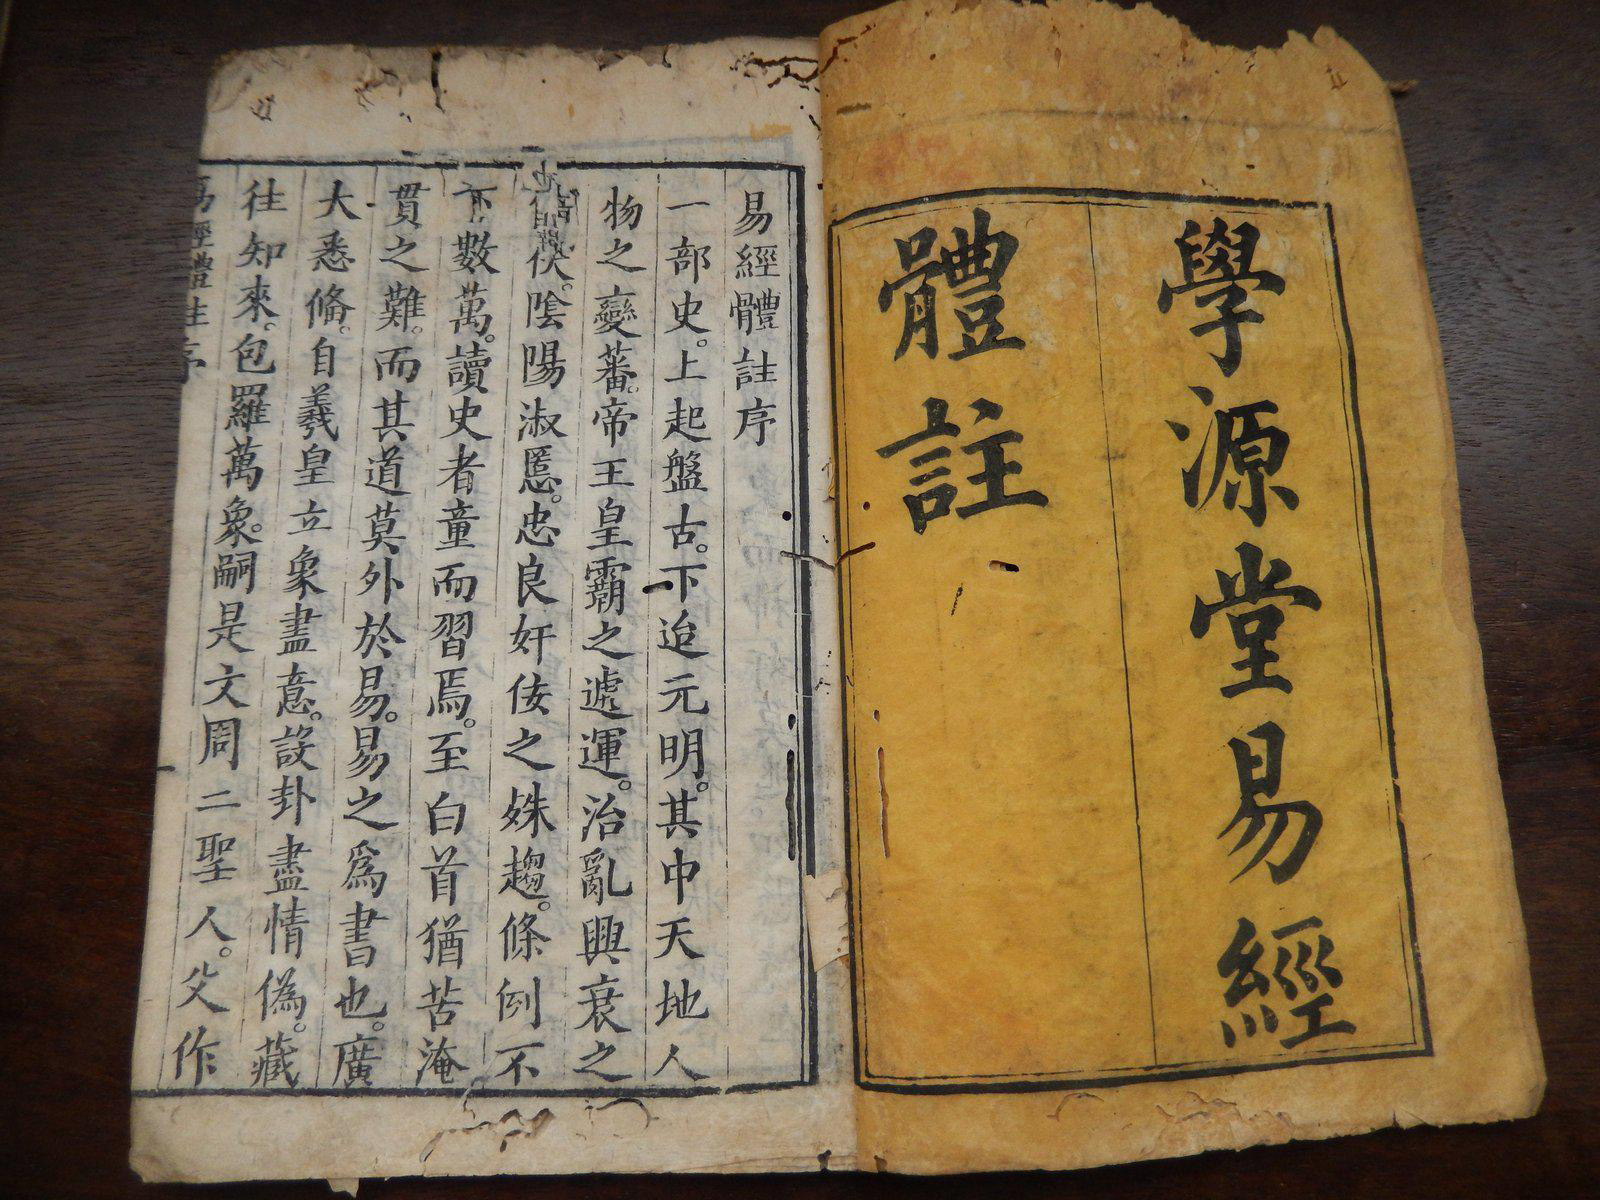 學源堂易經
體註
易經體註序
一部史。上起盤古。下迨元明。其中天地人
物之變蕃。帝王皇霸之遞運。治亂興衰之
伏。陰陽淑慝。忠良奸佞之姝趨。條例不
下數萬。讀史者童而習焉。至白首猶苦淹
貫之難。而其道莫外於易。易之為書也。廣
大悉俻。自羲皇立象盡意。設卦盡情偽。藏
往知來。包羅萬象。嗣是文周二聖人。父作
經體註序